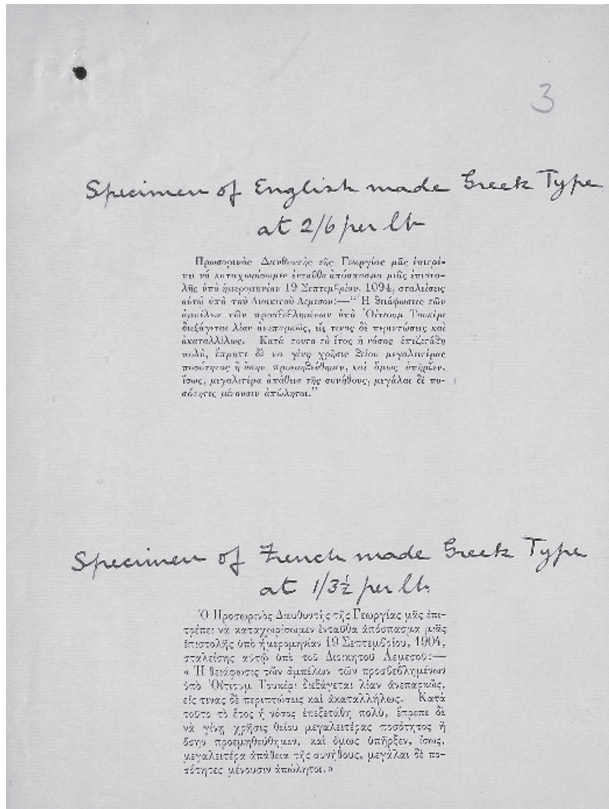 3
Specimen of English made Greek Type
at 2/6 per lb
Πρωσορινὸς Διευθυντὴς τῆς Γεωργίας μᾶς
πει νὰ καταχωρίσωμεν ἐνταῦθα ἀπόσπασμα μιᾶς ἐπιστο-
λῆς ὑπὸ ἡμερομηνίαν 19 Σεπτεμβρίου, 1094, σταλείσες
αὐτῷ ὑπὸ τοῦ Διοικητοῦ Λεμεσου:—“Ἡ θειάφωσις τῶν
ἀμπέλων τῶν προσβεβλημένων ὑπὸ Ὀΐτιουμ Τουκέρι
διεξάγεται λίαν ἀνεπαρκῶς, εἰς τινας δὲ περιπτώσεις καὶ
ἀκαταλλήλως. Κατὰ τουτο τὸ ἔτος ἡ νόσος
πολὺ, δὲ νὰ γίνῃ χρῆσις μεγαλειτέρας
ποσότητος ἢ ὅσην καὶ ὅμως ὑπῆρξεν,
ἴσως, μεγαλιτέρα ἀπάθεια τῆς συνήθους, μεγάλαι δὲ πο-
σότητες μένουσιν ἀπώλητοι.”
Specimen of French made Greek Type
at 1/3½ per lb.
Ὁ Προσωρινὸς Διευθυντὴς τῆς Γεωργίας μᾶς ἐπι-
τρέπει νὰ καταχωρίσωμεν ἐνταῦθα ἀπόσπασμα μιᾶς
ἐπιστολῆς ὑπὸ ἡμερομηνίαν 19 Σεπτεμβρίου, 1904,
σταλείσης αὐτῷ ὑπὸ τοῦ Διοικητοῦ Λεμεσοῦ:—
« Ἡ θειάφωσις τῶν ἀμπέλων τῶν προσβεβλημένων
ὑπὸ Ὀΐτιουμ Τουκέρι διεξάγεται λίαν ἀνεπαρκῶς,
εἰς τινας δὲ περιπτώσεις καὶ ἀκαταλλήλως. Κατὰ
τοῦτο τὸ ἔτος ἡ νόσος ἐπεξετάθη πολὺ, ἔπρεπε δὲ
νὰ γίνῃ χρῆσις θείου μεγαλειτέρας ποσότητος ἢ
ὅσην προεμηθεύθημεν, καὶ ὅμως ὑπῆρξεν, ἴσως,
μεγαλειτέρα ἀπάθεια τῆς συνήθους, μεγάλαι δὲ πο-
σότητες μένουσιν ἀπώλητοι.»